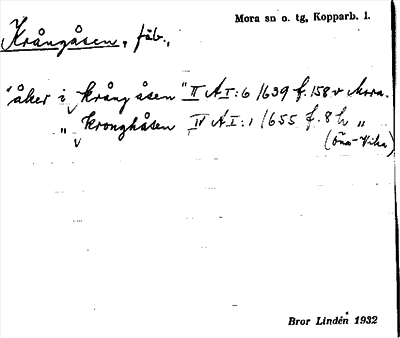 Mora sn o. tg, Kopparb. l.
Krångåsen, fäb.,
"åker i krångåsen" II A I:6 1639 f. 158 v Mora.
„ kronghåsen IV A I:1 1655 f. 8 h „
(Öna-Vika)
Bror Lindén 1932